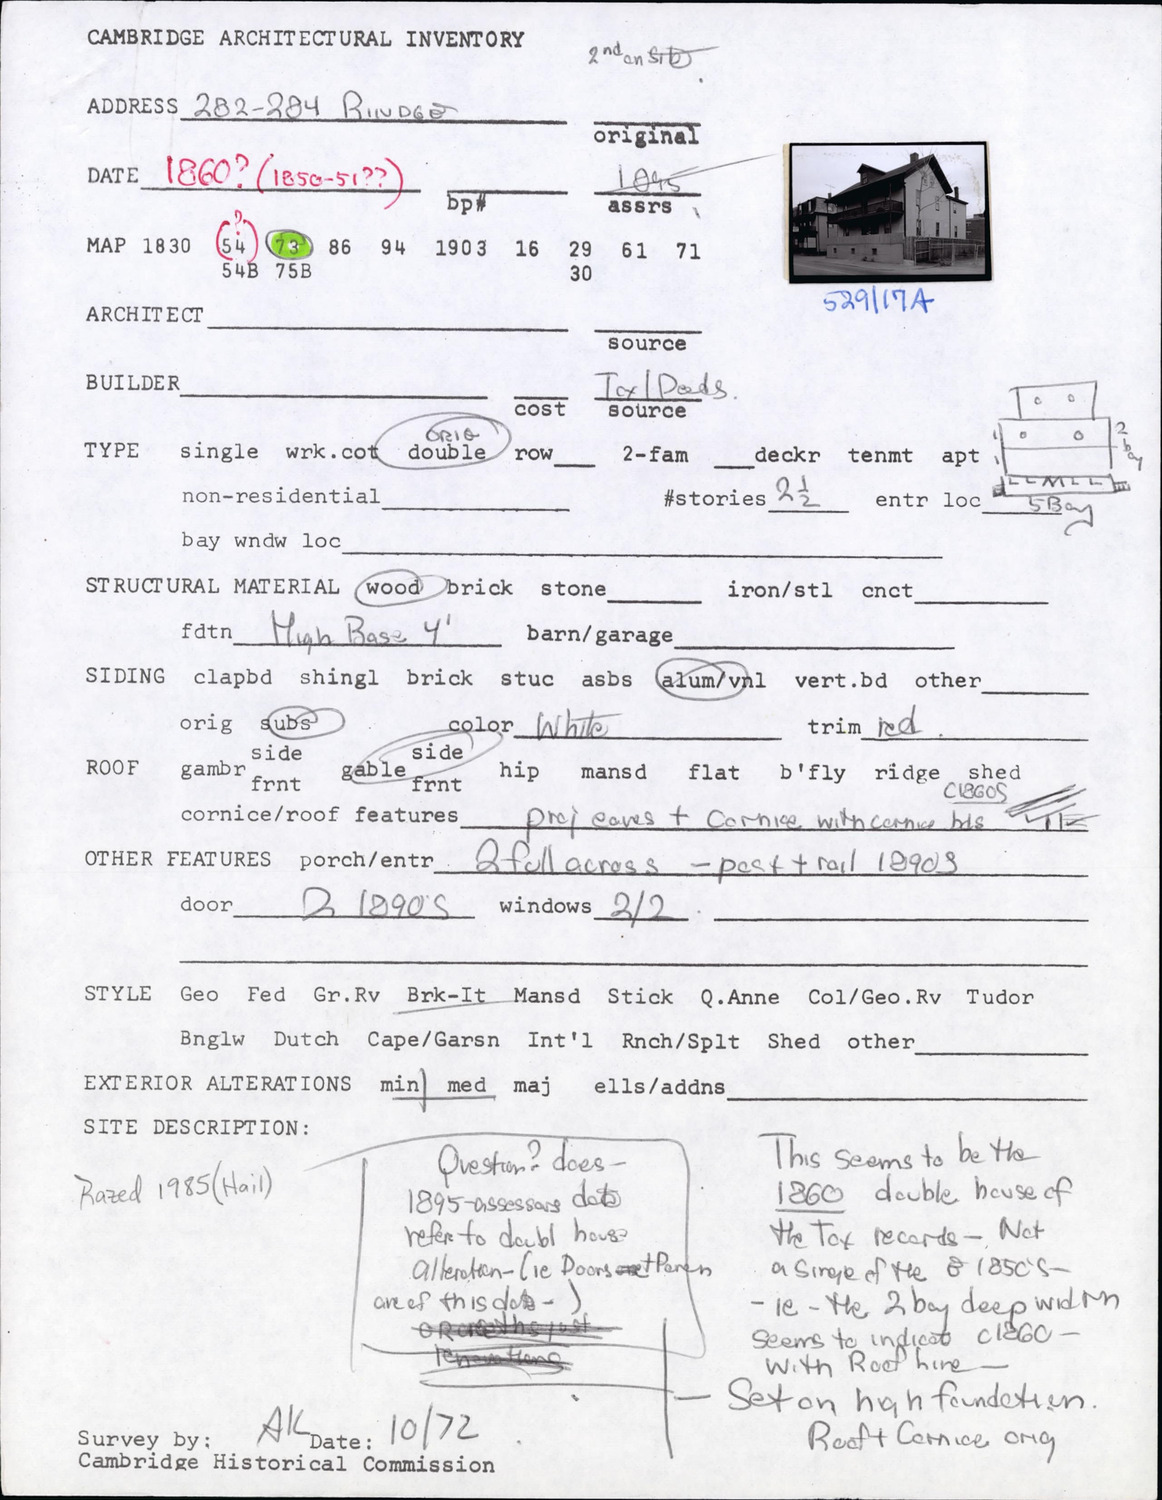 CAMBRIDGE ARCHITECTURAL INVENTORY
2nd on site
ADDRESS 282-284 RINDGE
original
DATE 1860? (1850-51??)
1895
bp# assrs
MAP 1830 54 73 86 94 1903 16 29 61 71
?
54B 75B 30
529/17A
ARCHITECT
source
BUILDER Tax/Deeds.
cost source
ORIG
TYPE single wrk.cot double row 2-fam deckr tenmt apt
2 bay
non-residential #stories 2 1/2 entr loc
5 Bay
bay wndw loc
STRUCTURAL MATERIAL wood brick stone iron/stl cnct
fdtn High Base 4' barn/garage
SIDING clapbd shingl brick stuc asbs alum/vnl vert.bd other
orig subs color White trim red
side side
ROOF gambr gable hip mansd flat b'fly ridge shed
frnt frnt
C1860S
cornice/roof features proj eaves + Cornice with cornice
OTHER FEATURES porch/entr 2 full across - post + rail 1890S
door 2 1890'S windows 2/2
STYLE Geo Fed Gr.Rv Brk-It Mansd Stick Q.Anne Col/Geo.Rv Tudor
Bnglw Dutch Cape/Garsn Int'l Rnch/Splt Shed other
EXTERIOR ALTERATIONS min med maj ells/addns
SITE DESCRIPTION:
Razed 1985 (Hail)
Question? does-
1895-assessors date
refer to doubl house
alteration-(ie Doors
are of this date-)
This seems to be the
1860 double house of
the Tax records-. Not
a single of the 1850'S-
- ie - the 2 bay deep width
seems to indicat c1860-
with Roof line-
Set on high foundation.
Roof + Cornice orig
Survey by: AK Date: 10/72
Cambridge Historical Commission